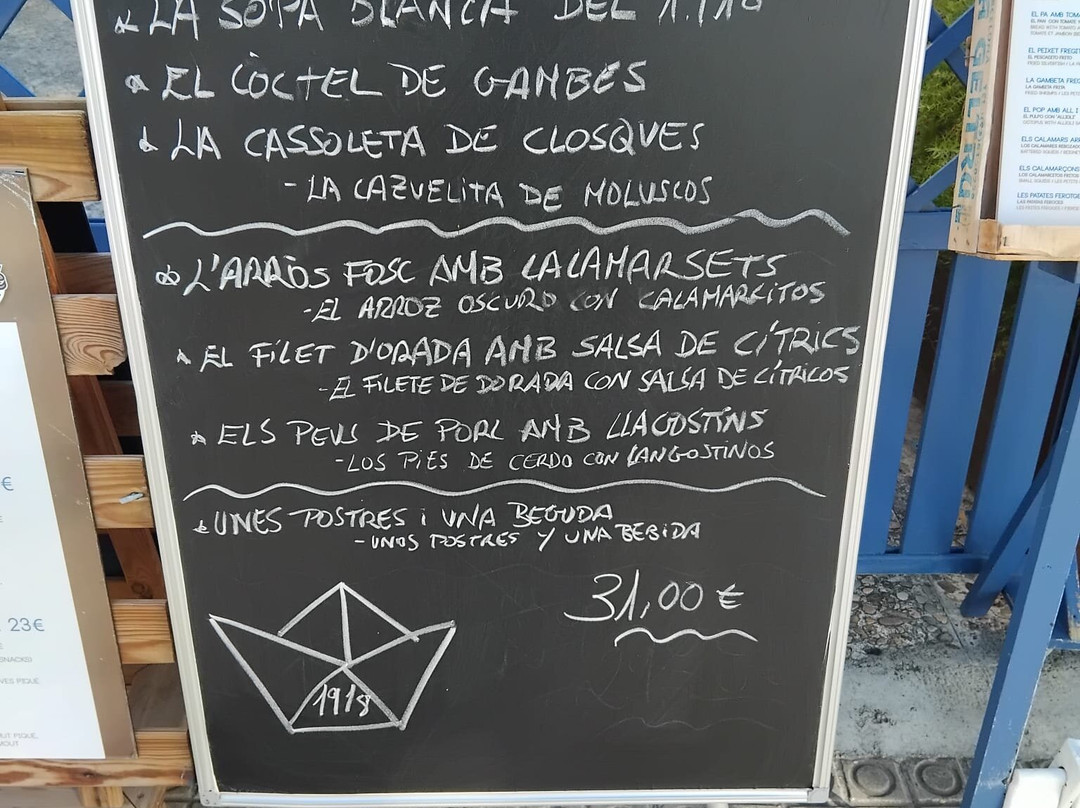 LA SOPA BLANCA DEL
EL CÒCTEL DE GAMBES
LA CASSOLETA DE CLOSQVES
- LA CAZUELITA DE MOLUSCOS
L'ARRÒS FOSC AMB CALAMARSETS
- EL ARROZ OSCURO CON CALAMARCITOS
EL FILET D'ORADA AMB SALSA DE CÍTRICS
- EL FILETE DE DORADA CON SALSA DE CÍTRICOS
ELS PEUS DE PORC AMB LLAGOSTINS
- LOS PIES DE CERDO CON LANGOSTINOS
UNES POSTRES i UNA BEGUDA
- UNOS POSTRES Y UNA BEBIDA
31,00 €
1918
€
23€
EL PA AMB
EL PEIXET
EL PESCADITO FRITO
LA GAMBETA
LA GAMBITA FRITA
EL POP AMB ALL I
EL PULPO CON "ALLIOLI"
ELS CALAMARS
LOS CALAMARES
ELS CALAMARÇONS
LES PATATES
LAS PATATAS FEROCES